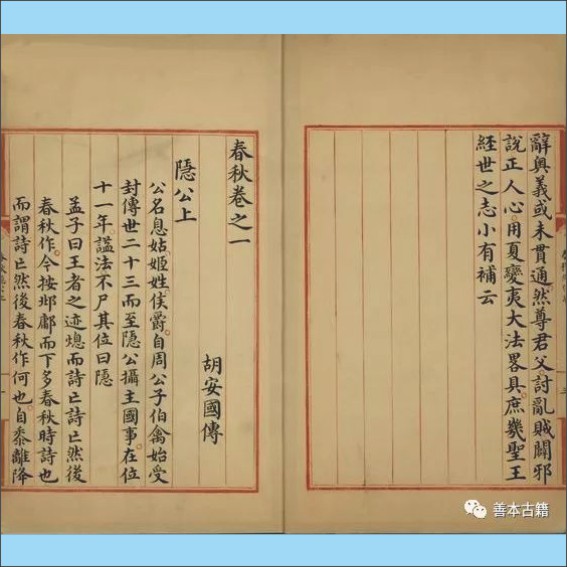 辭奥義或未貫通。然尊君父。討亂賊。闢邪
說。正人心。用夏變夷。大法畧具。庶幾聖王
經世之志。小有補云
春秋卷之一
胡安國傳
隱公上
公名息姑。姬姓。侯爵。自周公子伯禽始受
封。傳世二十三而至隱公。攝主國事。在位
十一年。謚法不尸其位曰隱
孟子曰王者之迹熄而詩亡。詩亡然後
春秋作。今按邶鄘而下。多春秋時詩也
而謂詩亡然後春秋作何也。自黍離降
善本古籍